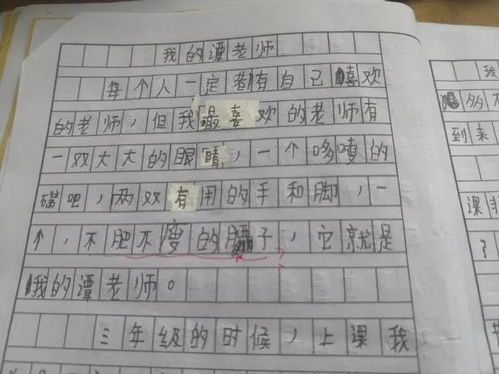 我的潭老师
每个人一定都有自己喜欢
的老师，但我最喜欢的老师有
一双大大的眼睛，一个哆喽的
嘴吧，两双有用的手和脚，一
个，不肥不瘦的子，它就是
我的潭老师。
三年级的时候，上课我
我
多
到来
课
？